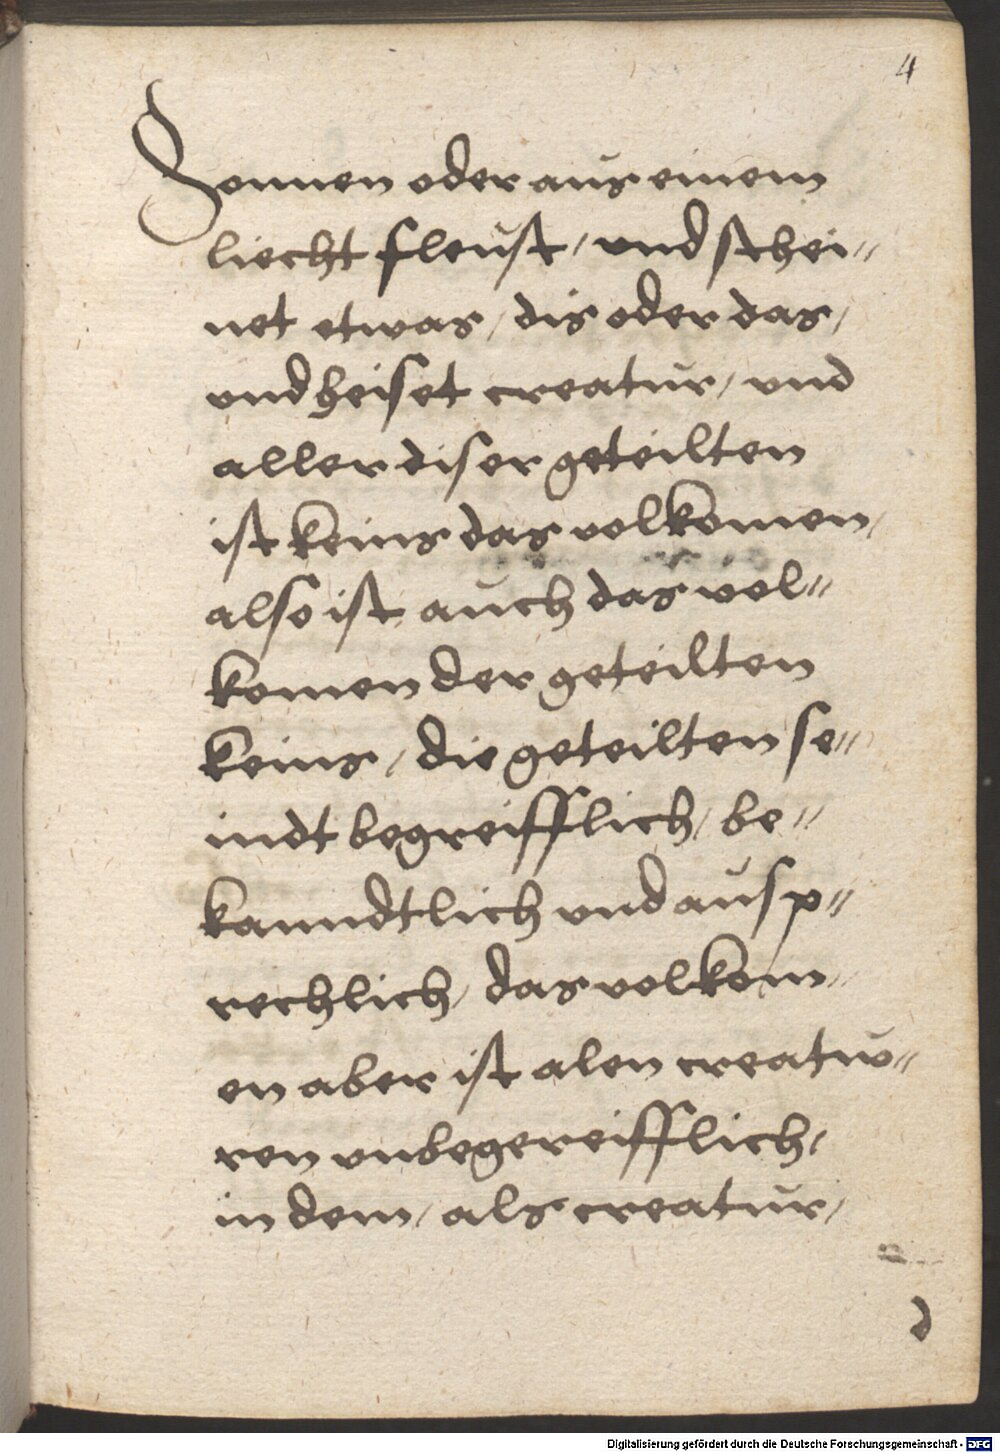 4
Sonnen oder aus einem
liecht fleust / und schei=
net etwas / dis oder das /
und heiset creatur / und
aller diser geteilten
ist keins das volkomen /
also ist auch das vol=
komen der geteilten
keins / die geteilten se=
indt begreifflich / be=
kanndtlich und ausp=
rechlich / das volkom
en aber ist alen creatu=
ren unbegereifflich /
in dem / als creatur /
Digitalisierung gefördert durch die Deutsche Forschungsgemeinschaft - DFG